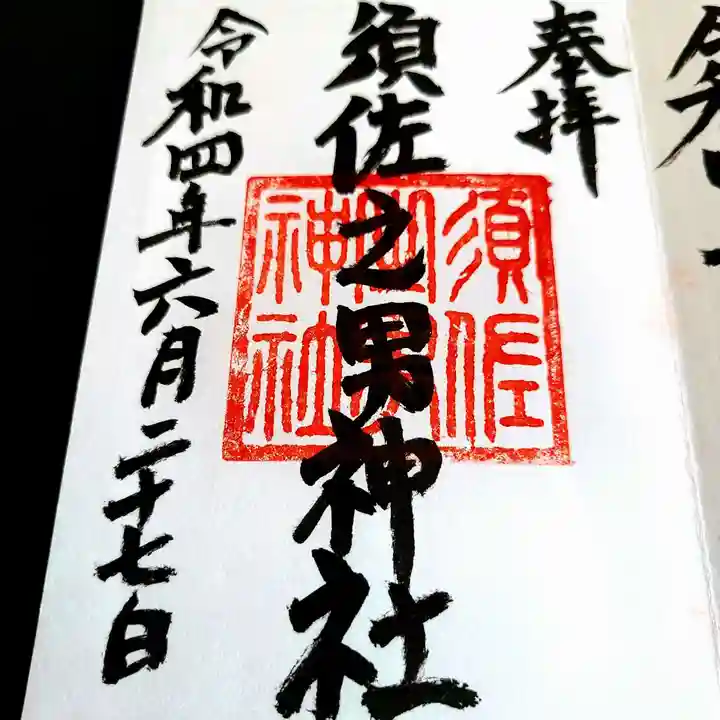 奉拝
須佐之男神社
須佐之男神社
令和四年六月二十七日